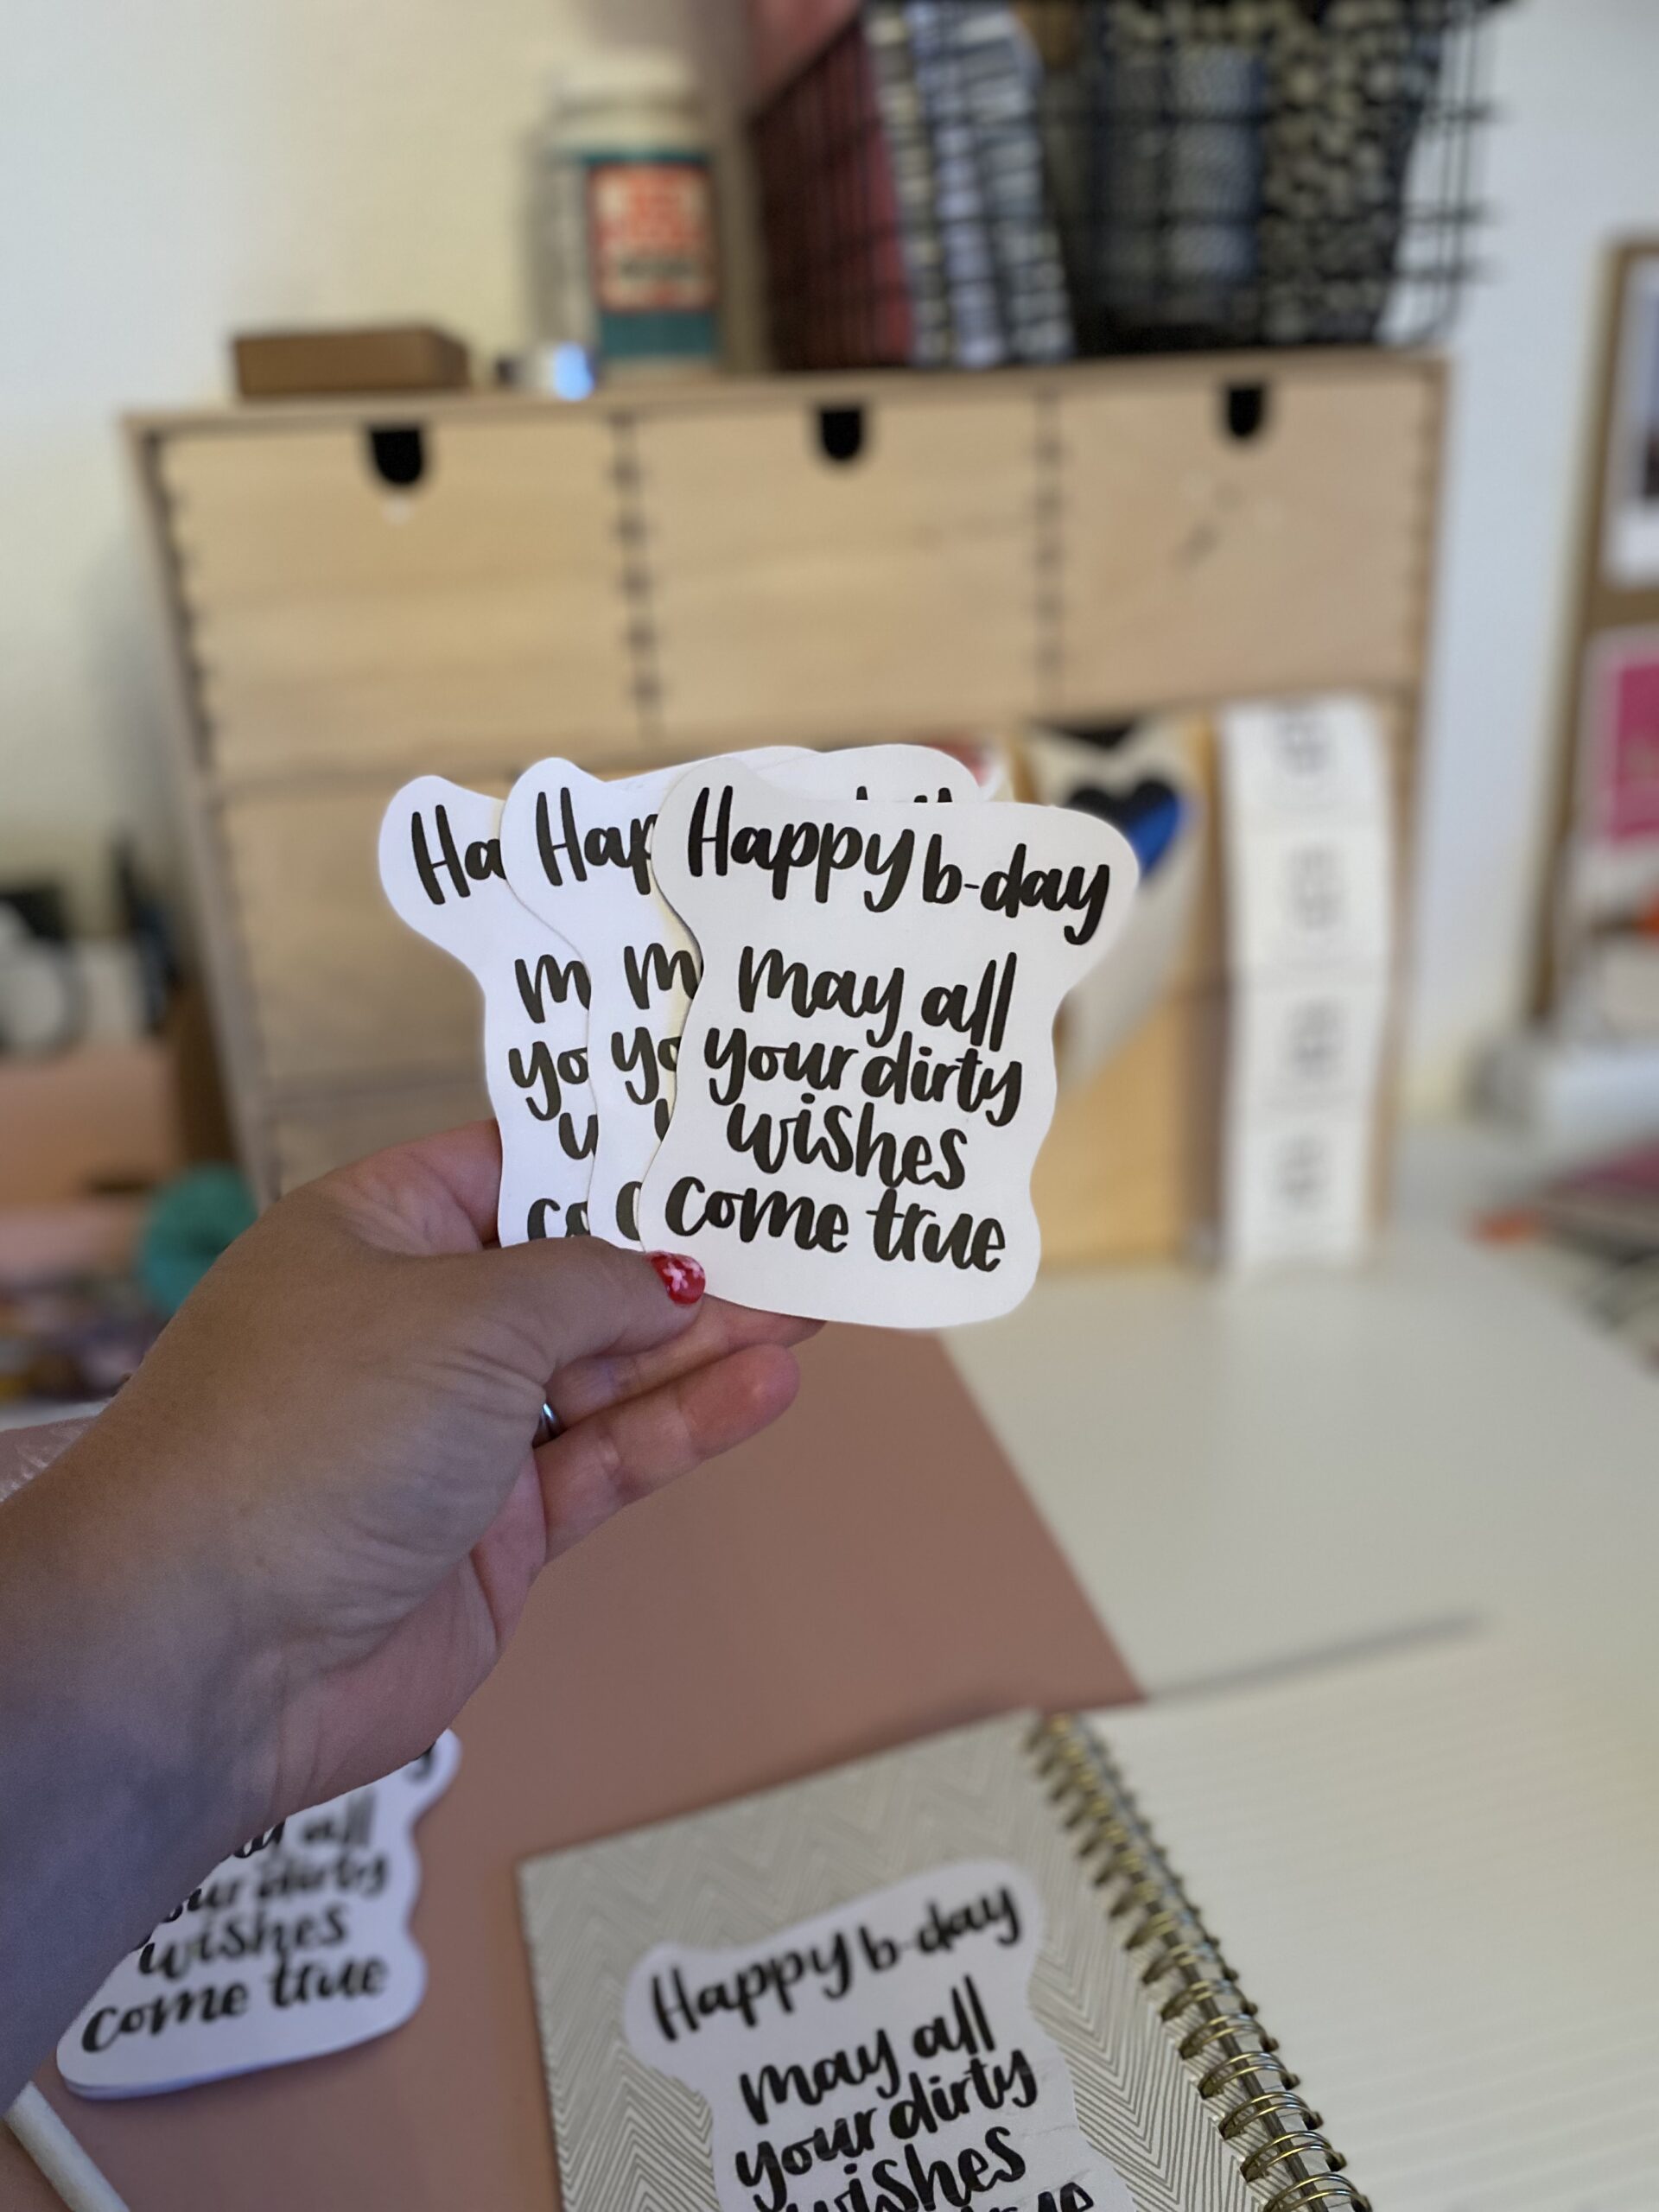 Ha
m
yo
w
co
Hap
m
yo
Happy b-day
may all
your dirty
wishes
come true
all
your dirty
wishes
come true
Happy b-day
may all
your dirty
wishes